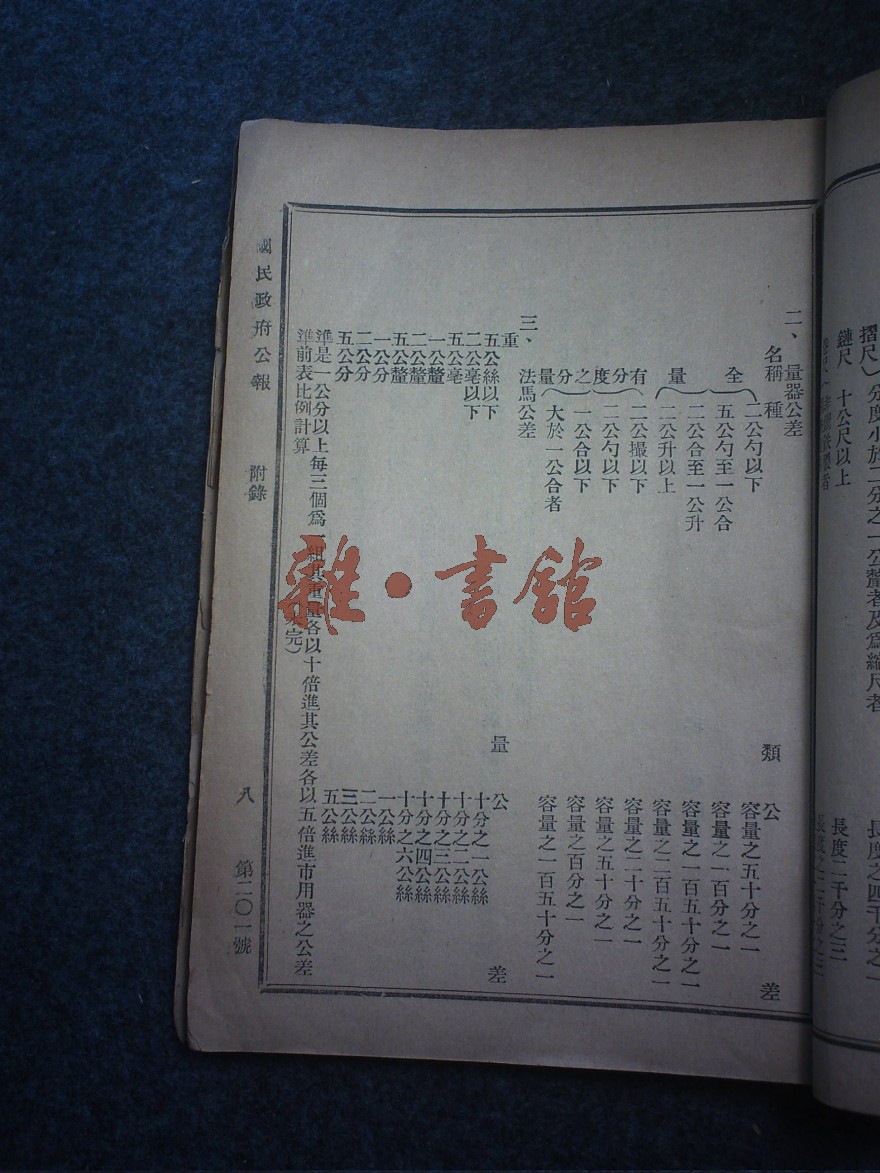 摺尺）分度小於二分之一公釐者及爲縮尺者
長度之四千分之一
鏈尺 十公尺以上
長度二千分之三
二、量器公差
名稱 種 類 公 差
全量
二公勺以下 容量之五十分之一
五公勺至一公合 容量之一百分之一
二公合至一公升 容量之一百五十分之一
二公升以上 容量之二百五十分之一
有分度之分量
二公撮以下 容量之二十分之一
二公勺以下 容量之五十分之一
一公合以下 容量之百分之一
大於一公合者 容量之一百五十分之一
三、法馬公差
重 量 公 差
五公絲以下 十分之一公絲
二公毫以下 十分之二公絲
五公毫 十分之三公絲
一公釐 十分之四公絲
二公釐 十分之六公絲
五公釐 一公絲
一公分 二公絲
二公分 三公絲
五公分 五公絲
準是一公分以上每三個爲一組其重量各以十倍進其公差各以五倍進市用器之公差
準前表比例計算 完）
國民政府公報 附錄 八 第二〇一號
雜·書館